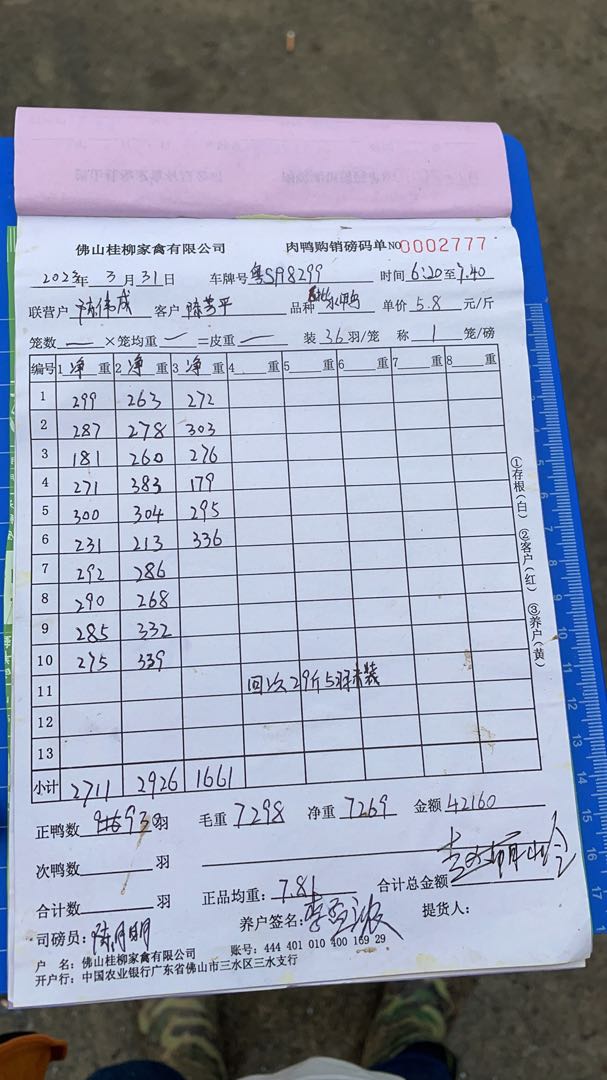 佛山桂柳家禽有限公司 肉鸭购销磅码单 NO 0002777
2023年 3月 31日 车牌号 粤SA8299 时间 6:20至7:40
联营户 陈伟成 客户 陈芳平 品种 水鸭 单价 5.8 元/斤
笼数 — ×笼均重 — =皮重 — 装 36 羽/笼 称 1 笼/磅
编号 1 净 重 2 净 重 3 净 重 4 重 5 重 6 重 7 重 8 重
1 299 263 272
2 287 278 303
3 181 260 276
4 271 383 179
5 300 304 295
6 231 213 336
7 292 286
8 290 268
9 285 332
10 275 339
11 回次29斤5羽未装
12
13
小计 2711 2926 1661
①存根(白) ②客户(红) ③养户(黄)
正鸭数 930 羽 毛重 7298 净重 7269 金额 42160
次鸭数 羽
合计数 羽 正品均重: 7.81 合计总金额
司磅员: 陈月明 养户签名: 提货人:
户 名: 佛山桂柳家禽有限公司 账号: 444 401 010 400 169 29
开户行: 中国农业银行广东省佛山市三水区三水支行